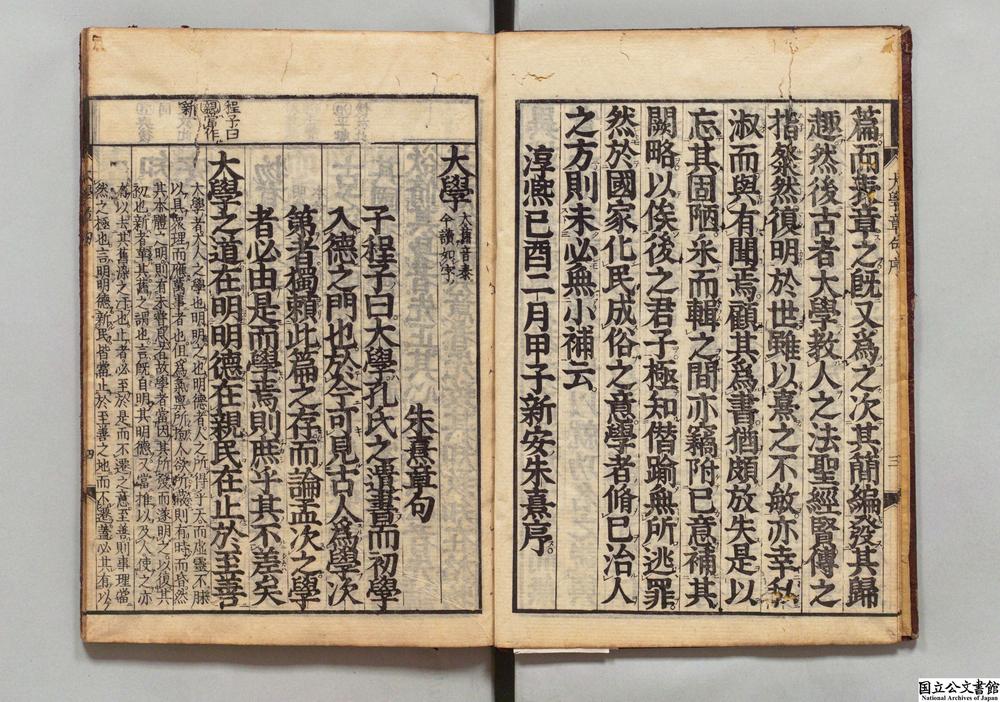 大學章句序
三
篇而表章之旣又爲之次其簡編發其歸
趣然後古者大學教人之法聖經賢傳之
指粲然復明於世雖以熹之不敏亦幸私
淑而與有聞焉顧其爲書猶頗放失是以
忘其固陋采而輯之間亦竊附己意補其
闕略以俟後之君子極知僭踰無所逃罪
然於國家化民成俗之意學者脩己治人
之方則未必無小補云
淳熙己酉二月甲子新安朱熹序
大學
大舊音泰
今讀如字
朱熹章句
子程子曰大學孔氏之遺書而初學
入德之門也於今可見古人爲學次
第者獨賴此篇之存而論孟次之學
者必由是而學焉則庶乎其不差矣
程子曰
親當作
新
大學之道在明明德在親民在止於至善
大學者大人之學也明明之也明德者人之所得乎天而虛靈不昧
以具衆理而應萬事者也但爲氣稟所拘人欲所蔽則有時而昏然
其本體之明則有未嘗息者故學者當因其所發而遂明之以復其
初也新者革其舊之謂也言旣自明其明德又當推以及人使之亦
有以去其舊染之汙也止者必至於是而不遷之意至善則事理當
然之極也言明明德新民皆當止於至善之地而不遷蓋必其有以
四
国立公文書館
National Archives of Japan